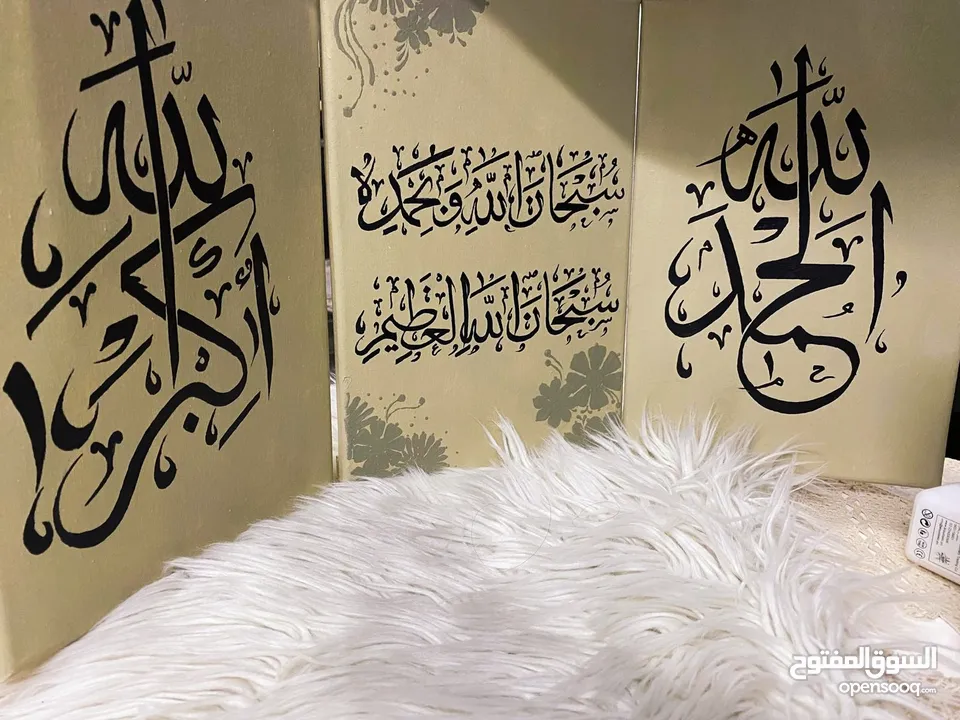 الحمد لله
سُبْحَانَ اللَّهِ وَبِحَمْدِهِ
سُبْحَانَ اللَّهِ الْعَظِيمِ
الله أكبر
السوق المفتوح
opensooq.com